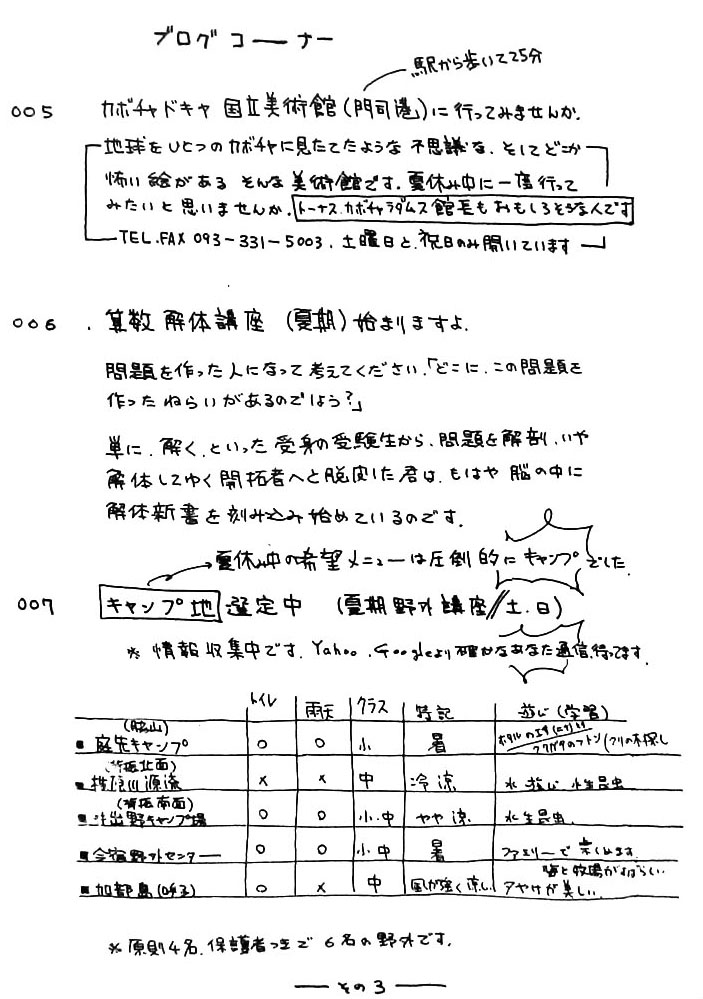 ブログコーナー
駅から歩いて25分
005 カボチャドキヤ国立美術館(門司港)に行ってみませんか.
地球をひとつのカボチャに見たてたような不思議な、そしてどこか
怖い絵がある そんな美術館です.夏休み中に一度行って
みたいと思いませんか.トーナス.カボチャラダムス館長もおもしろそうな人です
TEL.FAX 093-331-5003. 土曜日と、祝日のみ開いています
006 . 算数解体講座 (夏期)始まりますよ.
問題を作った人になって考えてください.「どこに、この問題を
作ったねらいがあるのでしょう?」
単に、解く、といった受身の受験生から、問題を解剖、いや
解体してゆく開拓者へと脱皮した君は、もはや脳の中に
解体新書を刻み込み始めているのです.
夏休み中の希望メニューは圧倒的にキャンプでした.
007 キャンプ地選定中 (夏期野外講座//土.日)
※ 情報収集中です. Yahoo.Googleより確かなあなた通信待ってます.
トイレ 雨天 クラス 特記 遊び(学習)
(脇山)
■ 庭先キャンプ ○ ○ 小 暑
(背振北面)
源流 × × 中 冷涼 水遊び 水生昆虫
(背振南面)
野キャンプ場 ○ ○ 小.中 やや涼 水生昆虫.
■ 今宿野外センター ○ ○ 小中 暑 ファミリーで
■ 加部島(呼子) ○ × 中 風が強く涼しい 海と牧場がすばらしい
アヤケが美しい.
※原則4名.保護者つきで6名の野外です.
— その3 —